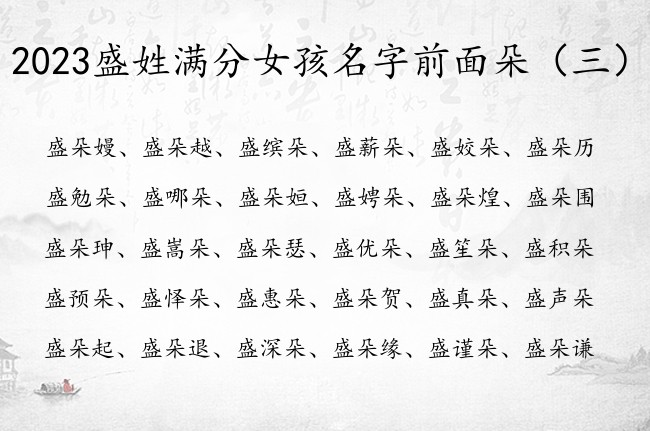 2023盛姓满分女孩名字前面朵（三）
盛朵嫚、盛朵越、盛缤朵、盛薪朵、盛姣朵、盛朵历
盛勉朵、盛哪朵、盛朵姮、盛娉朵、盛朵煌、盛朵围
盛朵珅、盛嵩朵、盛朵瑟、盛优朵、盛笙朵、盛积朵
盛预朵、盛怿朵、盛惠朵、盛朵贺、盛真朵、盛声朵
盛朵起、盛朵退、盛深朵、盛朵缘、盛谨朵、盛朵谦